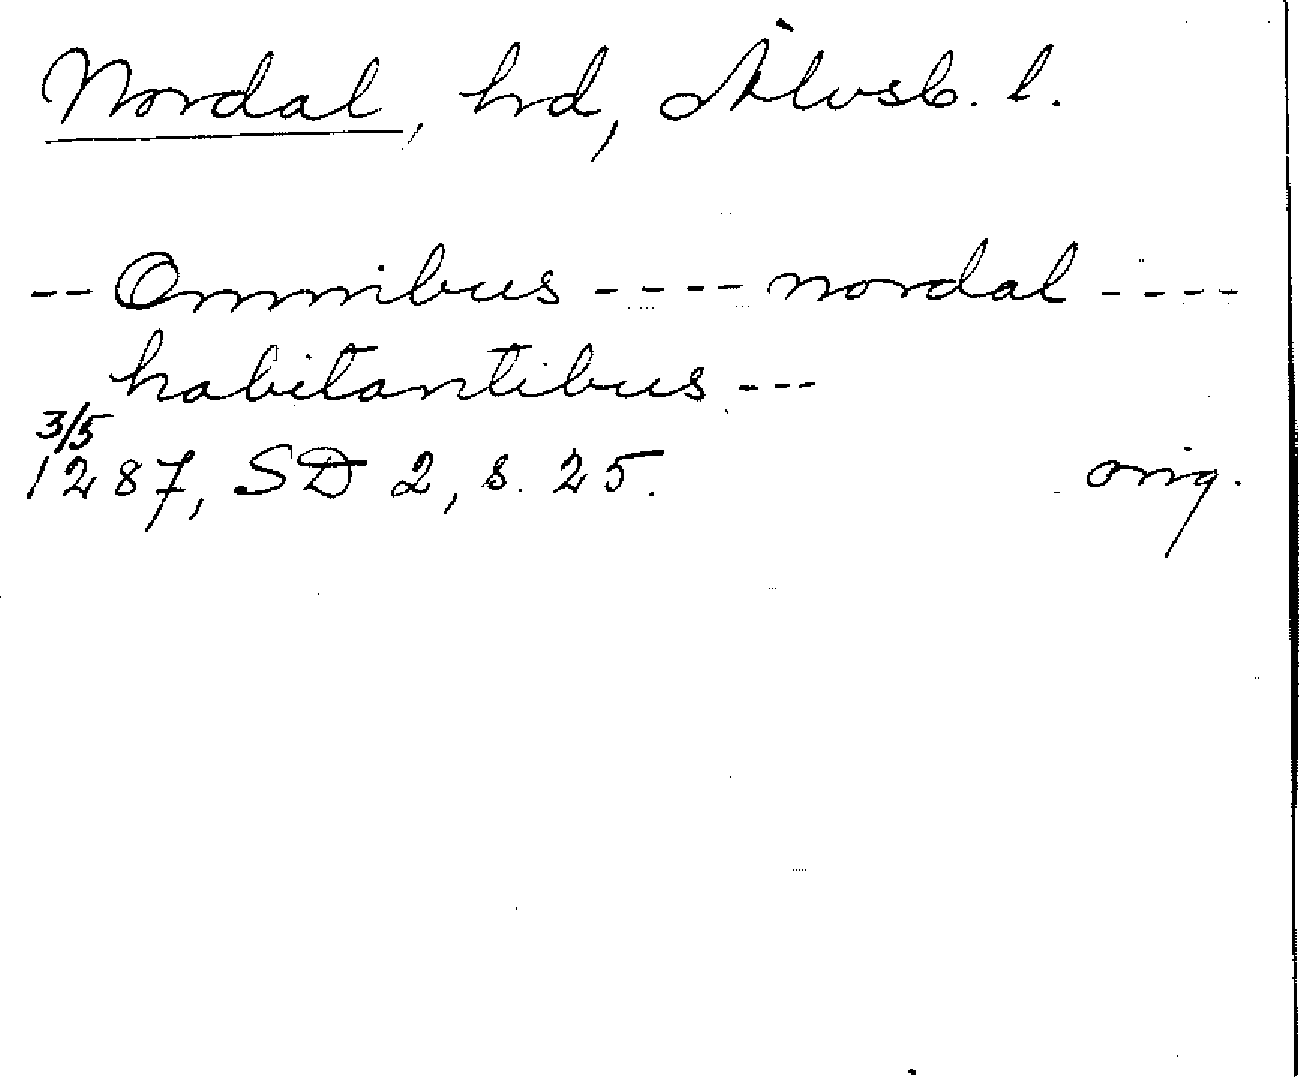 Nordal, hd, Älvsb. l.
-- Omnibus ---- nordal ----
habitantibus ---
3/5
1287, SD 2, s. 25. orig.